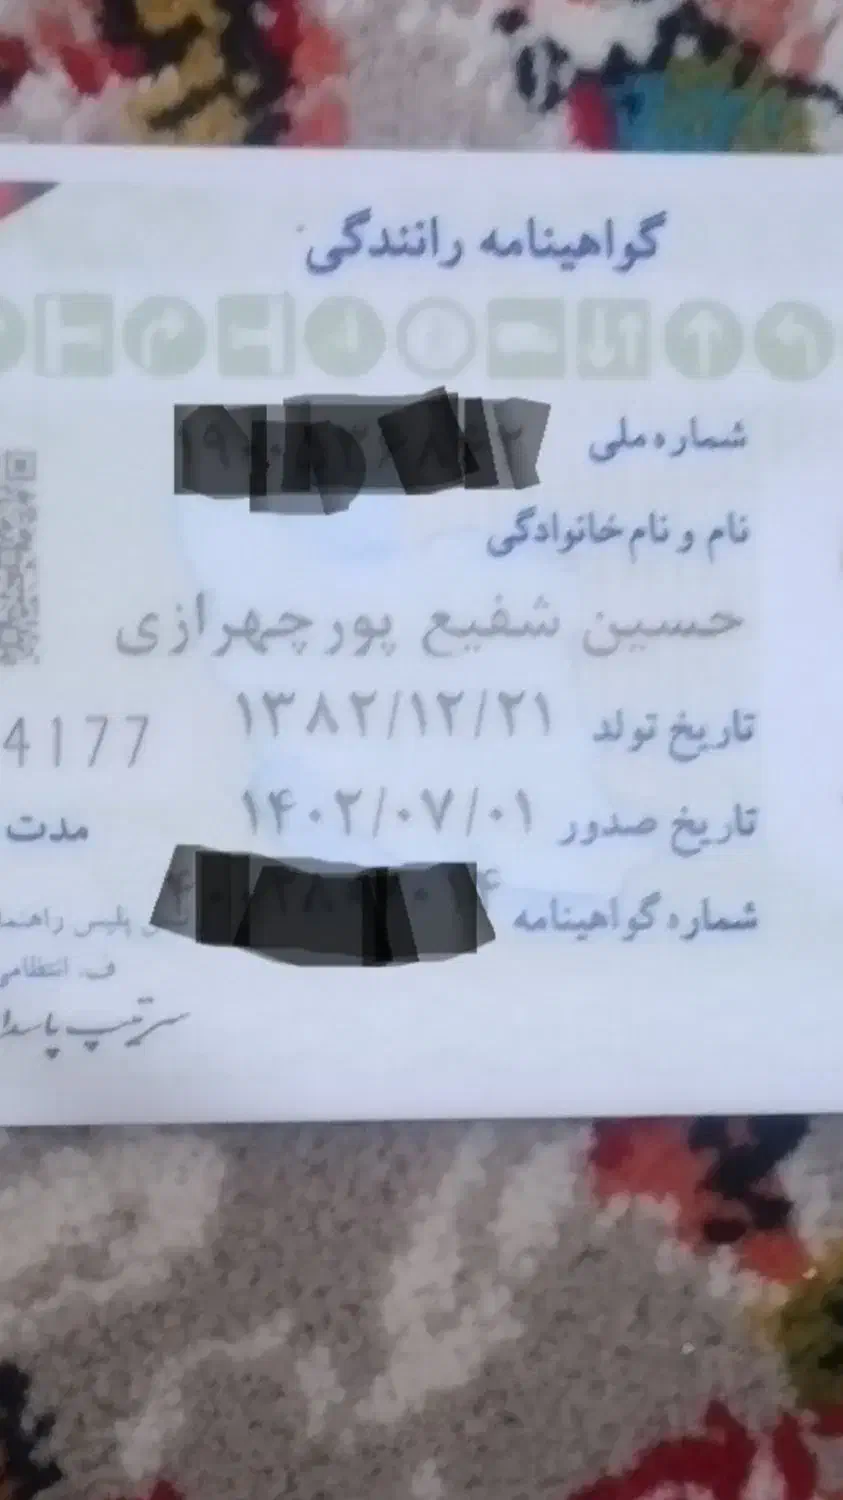 گواهینامه رانندگی
شماره ملی
نام و نام خانوادگی
حسین شفیع پورچهرازی
تاریخ تولد ۱۳۸۲/۱۲/۲۱
4177
تاریخ صدور ۱۴۰۲/۰۷/۰۱
مدت
شماره گواهینامه
پلیس راهنما
ف. انتظامی
سرتیپ پاسدا